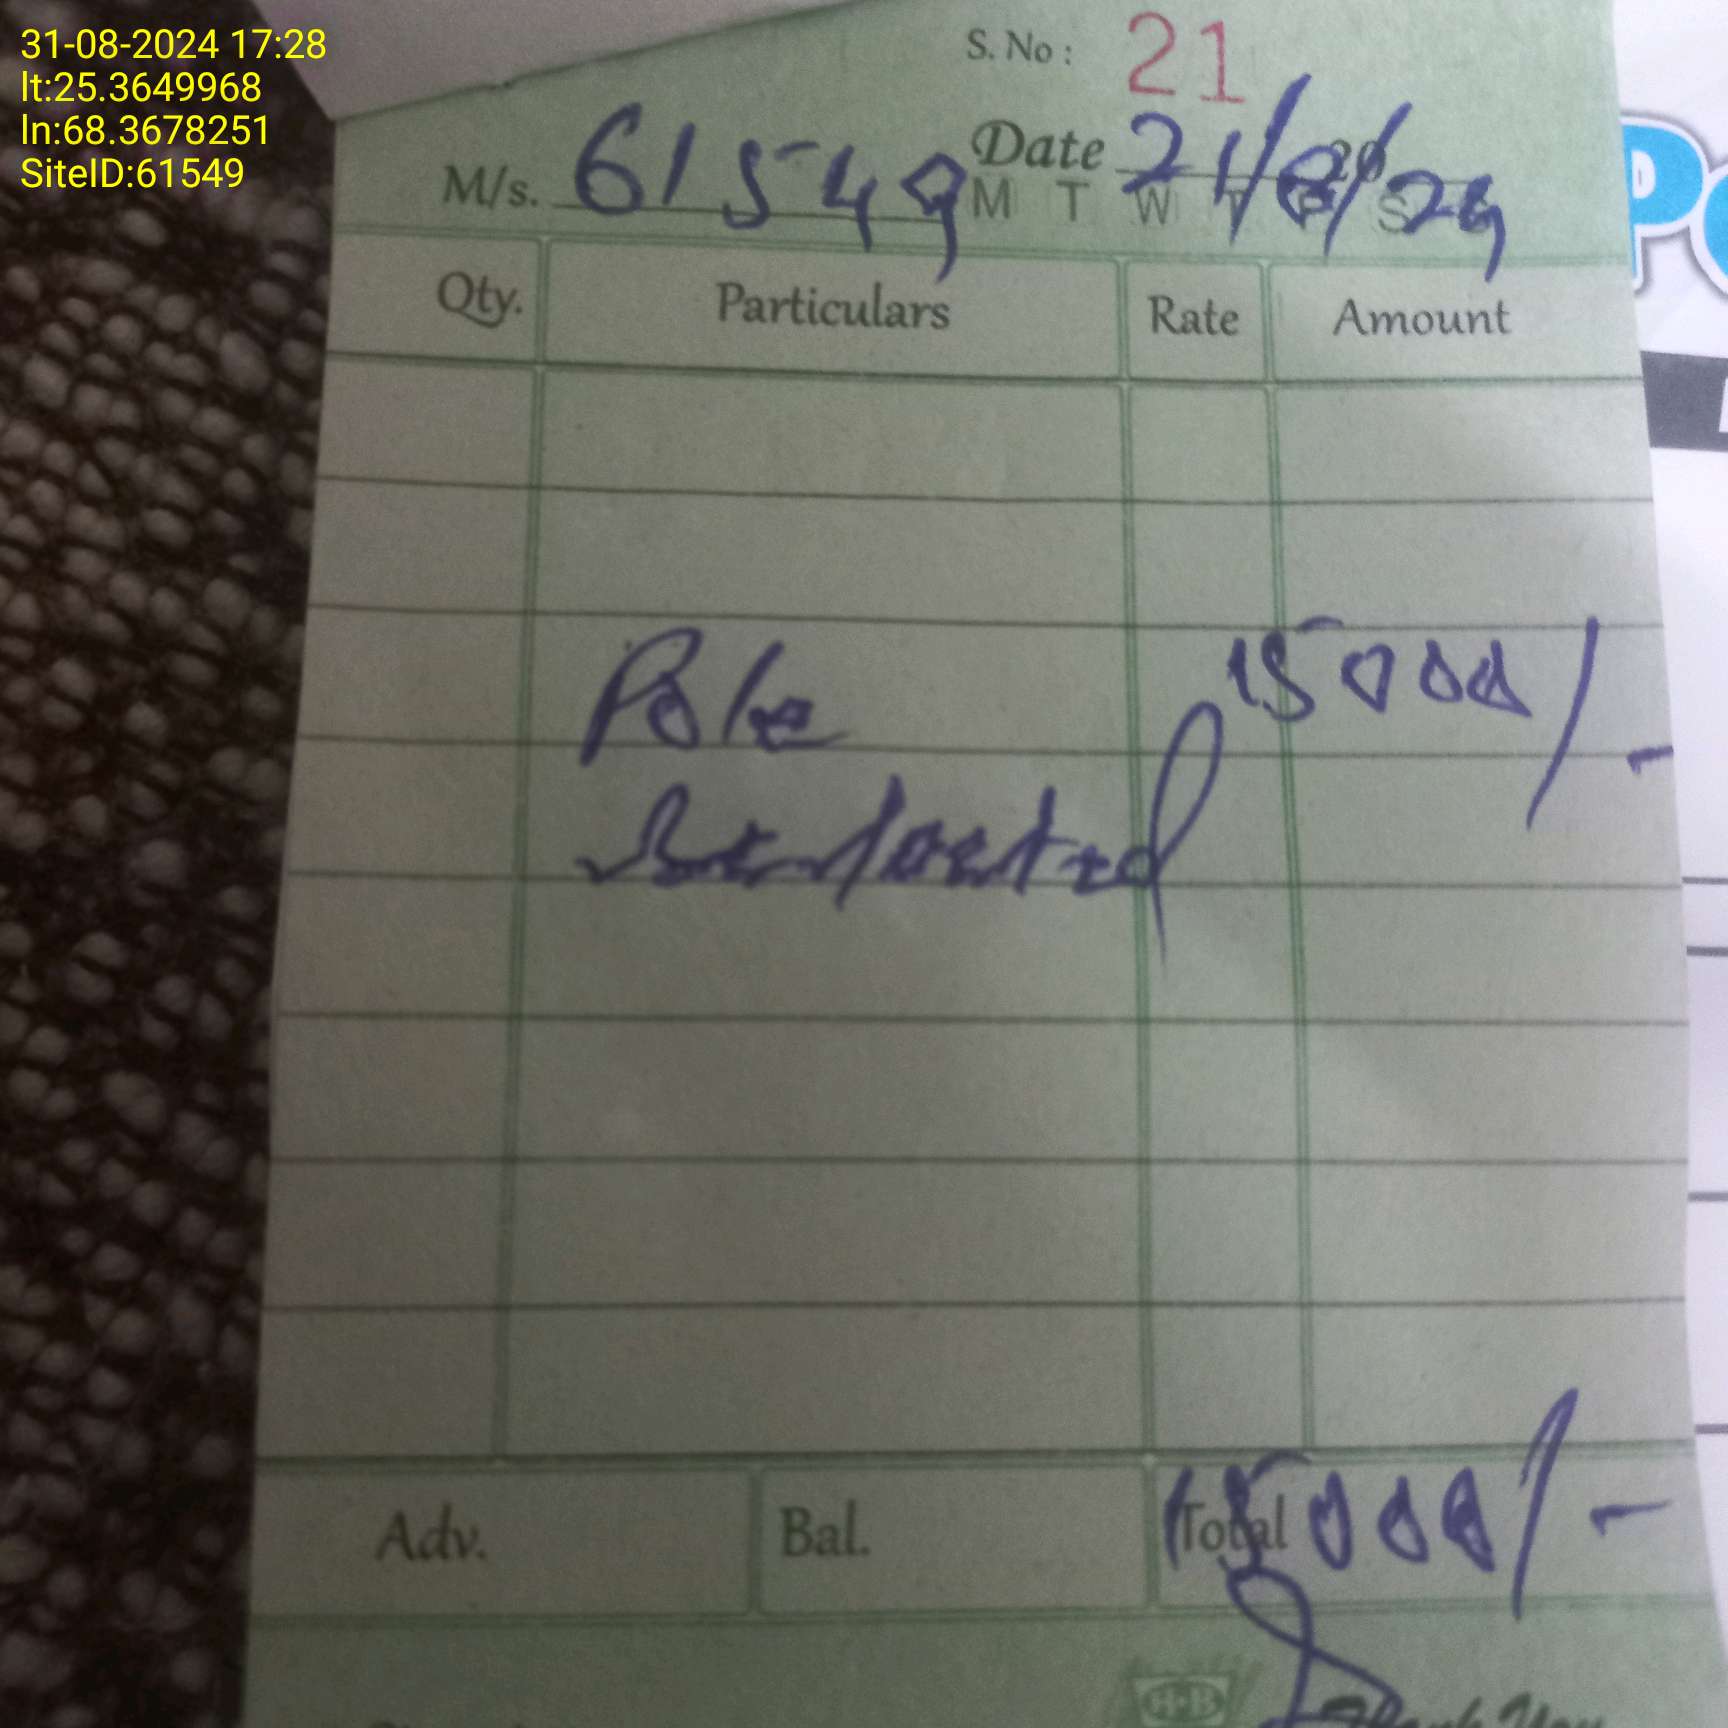 31-08-2024 17:28
lt:25.3649968
ln:68.3678251
SiteID:61549
S. No : 21
Date 21/8/24 20
M/s. 61549
M T W T F S
Qty. Particulars Rate Amount
Pole 15000/-
Adv. Bal. Total 15000/-
Thank You